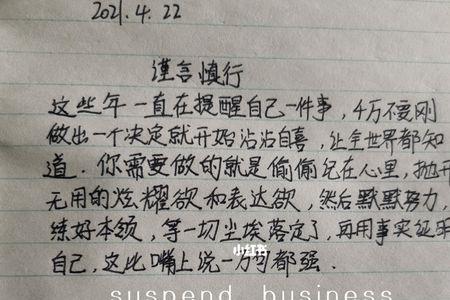 2021.4.22
谨言慎行
这些年一直在提醒自己一件事，4万不要刚
做出一个决定就开始沾沾自喜，让全世界都知
道．你需要做的就是偷偷记在心里，抛开
无用的炫耀欲和表达欲，然后默默努力，
练好本领，等一切尘埃落定了，再用事实证明
自己，这比嘴上说一万句都强．
小红书
suspend business